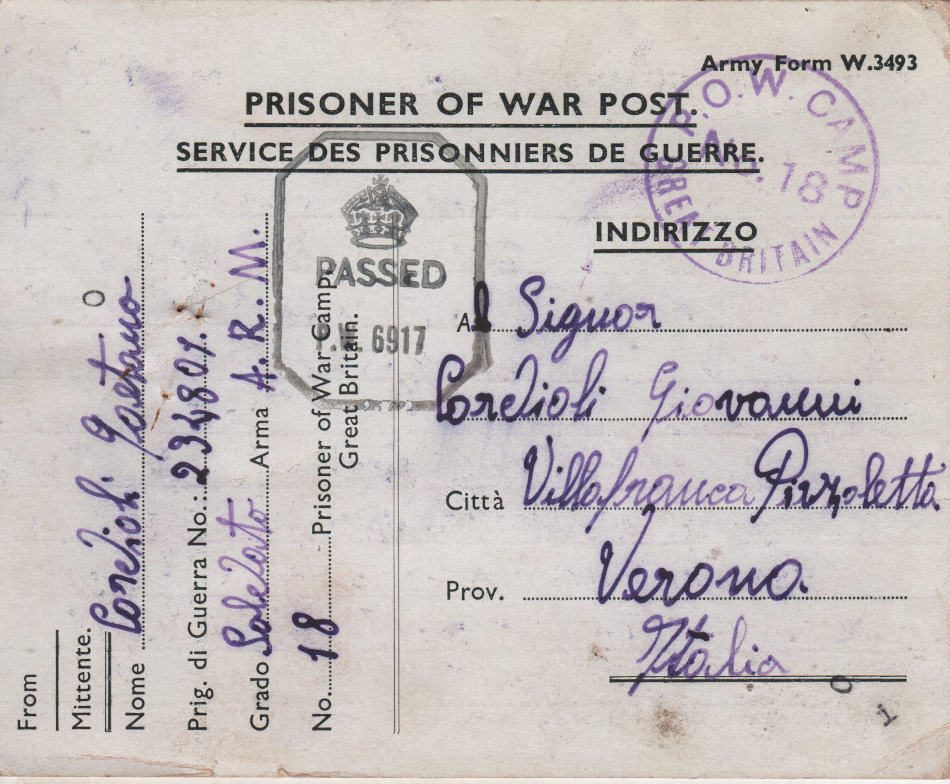 Army Form W.3493
PRISONER OF WAR POST.
SERVICE DES PRISONNIERS DE GUERRE.
P.O.W. CAMP
No. 18
GREAT BRITAIN
PASSED
P.W. 6917
INDIRIZZO
Al Signor
Cordioli Giovanni
Città Villafranca Pizzoletta
Prov. Verona.
Italia
From
Mittente.
Nome Cordioli Gaetano
Prig. di Guerra No.: 234801.
Grado Soldato Arma A. R. M.
No. 18 Prisoner of War Camp,
Great Britain.